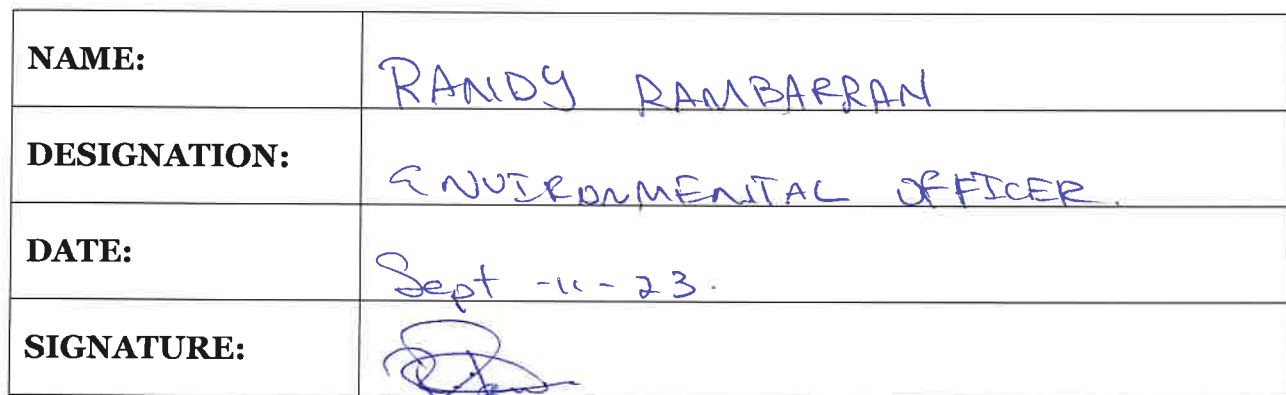 NAME: RANDY RAMBARRAN
DESIGNATION: ENVIRONMENTAL OFFICER.
DATE: Sept -11-23.
SIGNATURE: